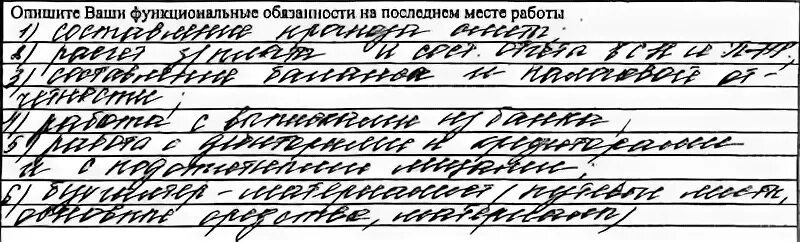 Опишите Ваши функциональные обязанности на последнем месте работы
1) составление
2) расчет з/платы и сост. отчета в
3) составление баланса и налоговой от-
четности;
4) работа с выписками из банка;
5) работа с дебиторами и кредиторами
и с подотчетными лицами;
6) бухгалтер-материалист (путевые листы,
основные средства, материалы)